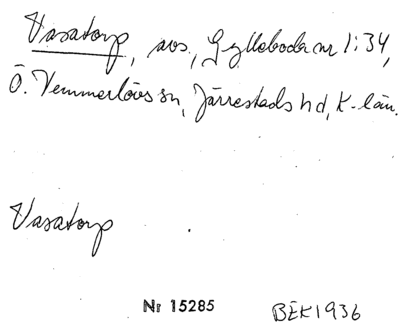 Vasatorp, avs., Gylleboda nr 1:34,
Ö. Vemmerlövs sn, Järrestads hd, K-län.
Vasatorp
Nr 15285 BEK1936